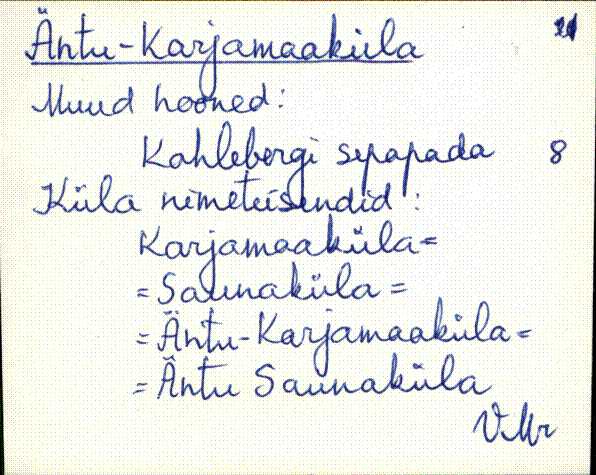 Äntu-Karjamaaküla
Muud hooned:
Kahlebergi sepapada 8
Küla nimeteisendid:
Karjamaaküla=
=Saunaküla=
=Äntu-Karjamaaküla=
=Äntu Saunaküla